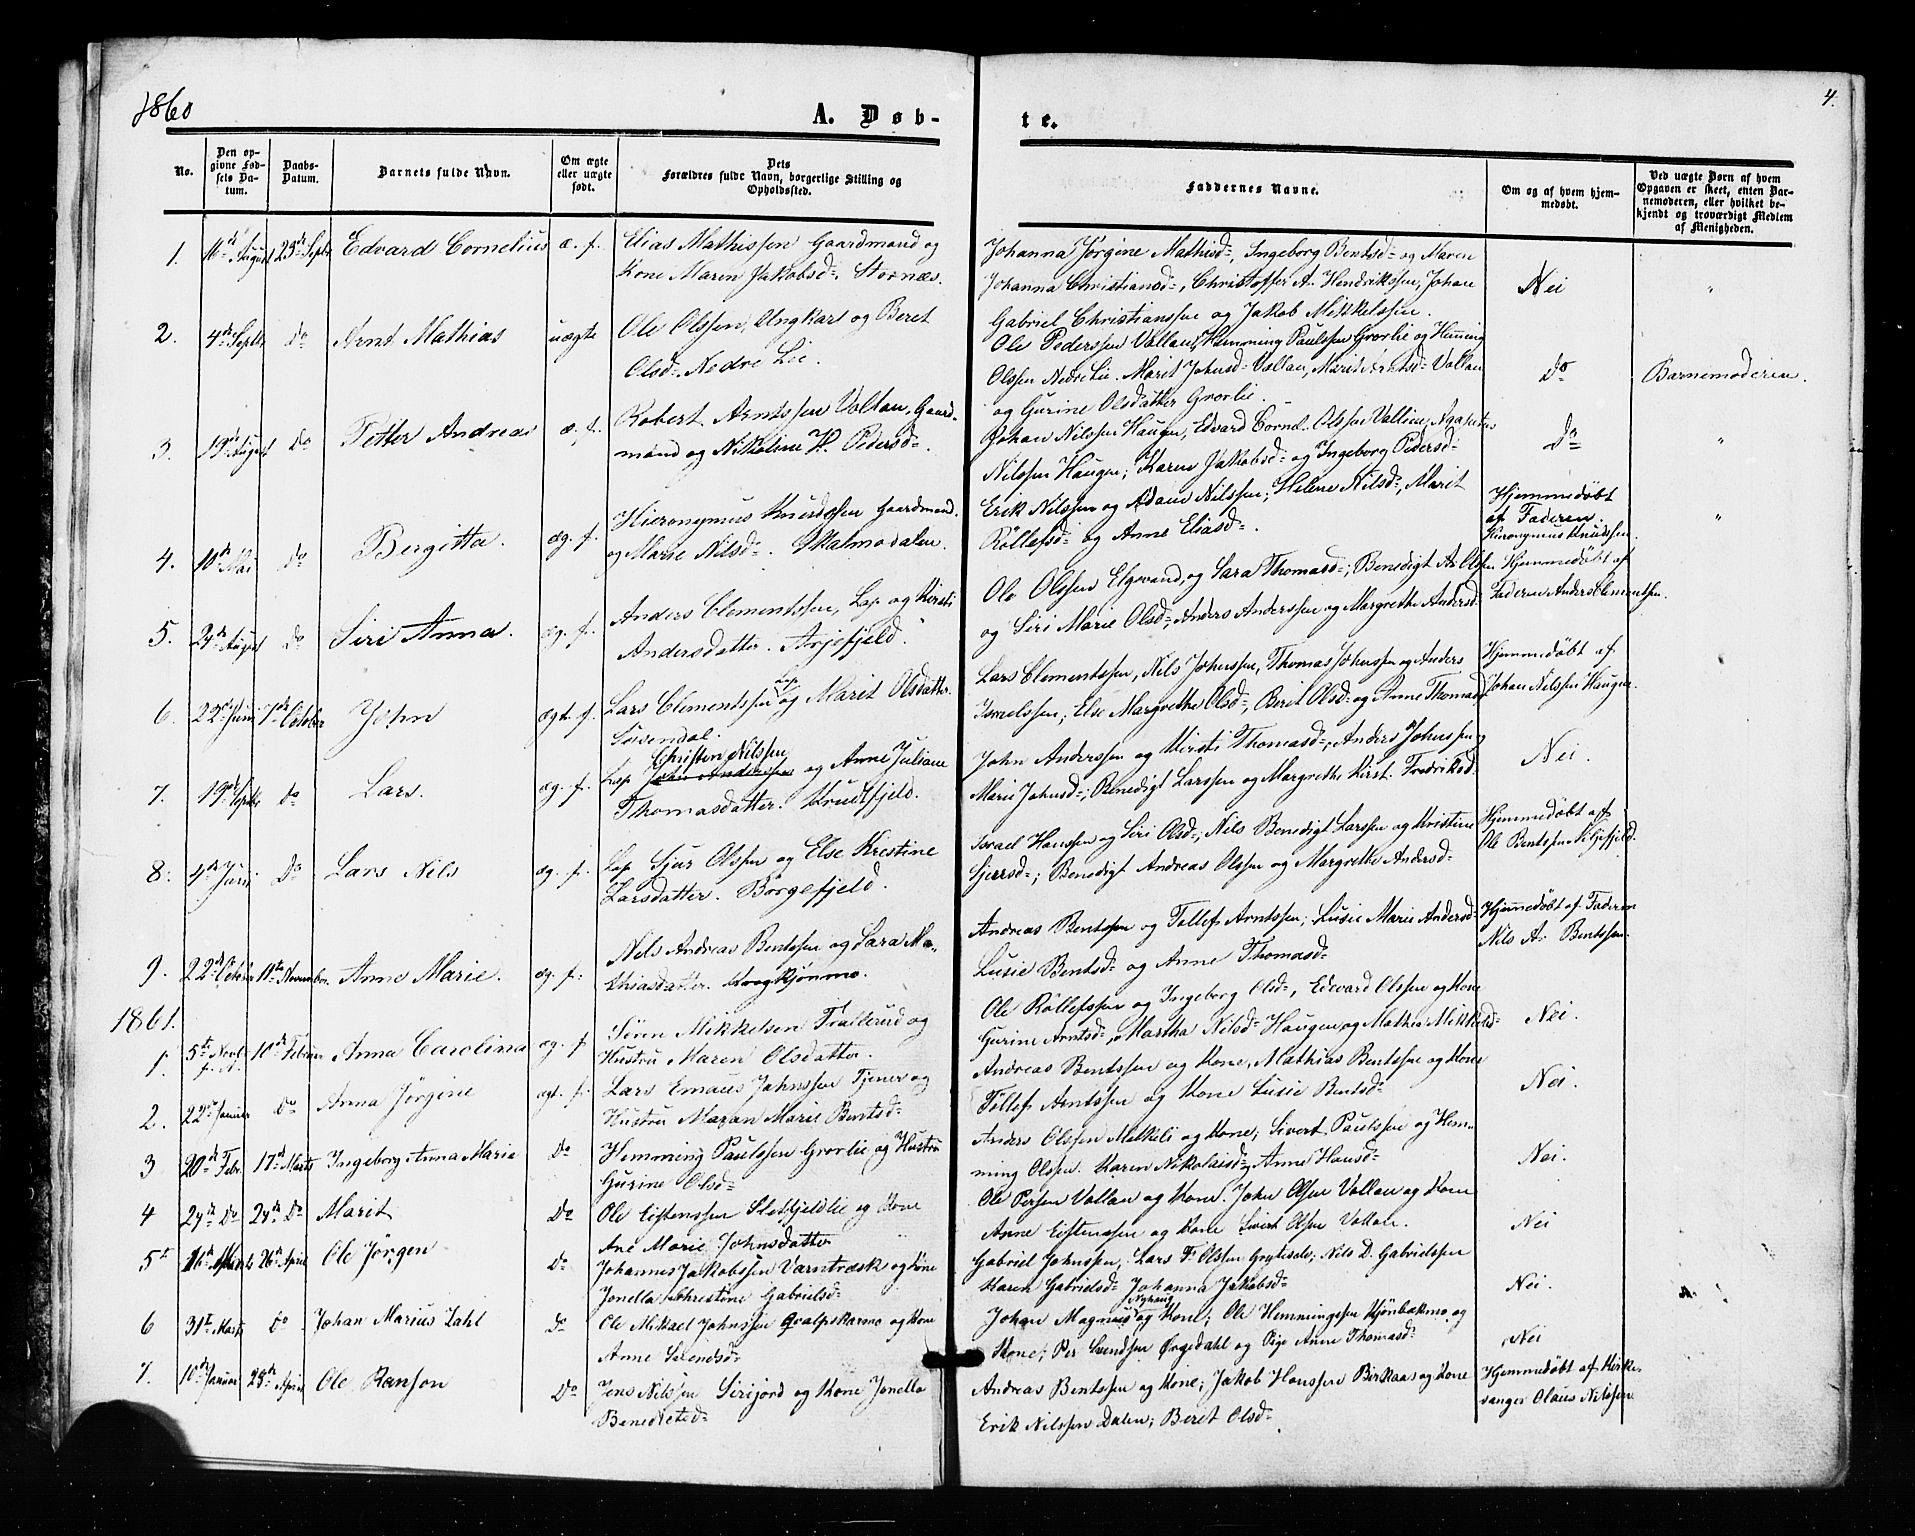 1860
A. Døb-
te.
4.
No.
Den op-
givne Fød-
sels Da-
tum.
Daabs-
Datum.
Barnets fulde Navn.
Om ægte
eller uægte
født.
Dets
Forældres fulde Navn, borgerlige Stilling og
Opholdssted.
Faddernes Navne.
Om og af hvem hjem-
medøbt.
Ved uægte Børn af hvem
Opgaven er skeet, enten Bar-
nemoderen, eller hvilket be-
kjendt og troværdigt Medlem
af Menigheden.
1. 16de August 23de Septbr Edvard Cornelius æ. f. Elias Mathissen Gaardmand og
Kone Maren Jakobsd. Stornæs.
Johanna Jørgine Mathisd, Ingeborg Bentsd og Maren
Johanna Christiansd, Christoffer A. Hendrikssen, Johan
Gabriel Christianssen og Jakob Mikkelssen.
Nei "
2. 4de Septbr Do Arnt Mathias uægte Ole Olssen, Ungkar og Beret
Olsd Nedre Lie.
Ole Pederssen Vallan, Hemming Paulssen Grorlie og Heming
Olssen Nedre Lie. Marit Johnsd Vallan, Marit Arntsd Vallan
og Gurine Olsdatter Grorlie.
Do Barnemoderen.
3. 19de August Do Petter Andreas æ. f. Robert Arntssen Vollan, Gaard-
mand og Nikoline H. Pedersd.
Johan Nilssen Haugen, Edvard Cornel. Olssen
Nilssen Haugen; Karen Jakobsd og Ingeborg Pedersd
Do "
4. 10de Mai Do Bergitta. æg. f. Hieronymus Knudssen Gaardmand.
og Marie Nilsd. Skalmodalen.
Erik Nilssen og Adam Nilssen; Helene Nilsd, Marit
Röllefsd og Anne Eliasd.
Hjemmedöbt
af Faderen
Hieronymus Knudssen. "
5. 24de August Do Siri Anna. æg. f. Anders Clementssen, Lap og Kirsti
Andersdatter. Arjefjeld.
Ole Olssen Elgvand, og Sara Thomasd; Benedigt A. Olssen
og Siri Marie Olsd, Anders Anderssen og Margrethe Andersd
Hjemmedöbt af
Faderen Anders Clementssen.
6. 22de Juni 7de October John ægt. f. Lars Clementssen Lap og Marit Olsdatter.
Susendal.
Lars Clementssen, Nils Johnssen, Thomas Johnssen og Anders
Israelssen; Else Margrethe Olsd, Beret Olsd og Anne Thomasd
Hjemmedöbt af
Johan Nilssen Haugen.
7. 19de Septbr Do Lars. æg. f. Christen Nilssen
Lap og Anne Juliane
Thomasdatter. Krudtfjeld.
John Anderssen og Kirsti Thomasd, Anders Johnssen og
Marie Johnsd; Benedigt Larssen og Margrethe Kirst. Fredriksd
Nei.
8. 4de Juni Do Lars Nils æg. f. Lap Sjur Olssen og Else Krestine
Larsdatter. Börgefjeld.
Israel Hanssen og Siri Olsd, Nils Benedigt Larssen og Kristine
Sjursd; Benedigt Andreas Olssen og Margrethe Andersd
Hjemmedöbt af
Ole Bentssen
9. 22de October 11te November Anne Marie. æg. f. Nils Andreas Bentssen og Sara Ma-
thiasdatter.
Andreas Bentssen og Tollef Arntssen; Lusie Marie Andersd
Lusie Bentsd og Anne Thomasd
Hjemmedöbt af Faderen
Nils A. Bentssen.
1861.
1. 5te Novbr f. A. 10de Februar Anna Carolina æg. f Sönn Mikkelsen Trallerud og
Hustru Maren Olsdatter.
Ole Röllefssen og Ingeborg Olsd, Edevard Olssen og Kone
Gurine Arntsd, Martha Nilsd Haugen, og Mathea Mikkelsd
Nei.
2. 22de Januar Do Anna Jörgine ægt. f. Lars Emaus Jahnssen Tjener og
Hustru Maren Marie Bentsd
Andreas Bentssen og Kone, Mathias Bentssen og Kone
Tollef Arntssen og Kone Lusie Bentsd
Nei.
3 20de Febr. 17de Marts Ingeborg Anna Marie Do Hemming Paulssen Grorlie og Hustru
Gurine Olsd
Anders Olssen Mikkeli og Kone; Sivert Paulssen og Hem-
ming Olssen. Karen Nikolaisd, Anne Hansd
Nei.
4 24de Do 28de Do Marit Do Ole Eistenssen Sletfjeldlie og Kone
Ane Marie Johnsdatter
Ole Persen Vallan og Kone. John Olsen Vollan og Kone
Anne Eistenssen og Kone Sivert Olsen Vollan.
Nei
5 16de Marts 26de April Ole Jörgen Do Johannes Jakobssen Varntræsk og Kone
Jonella Chrestine Gabrielsd
Gabriel Johnssen, Lars P. Olssen Grytselv, Nils D. Gabrielssen
Karen Gabrielsd Johanna Jakobsd
Nei
6 31te Marts Do Johan Marius Dahl Do Ole Mikael Johnssen Gralpskarmo og Kone
Anne Svendsd
Johan Magnus Nyhaug og Kone; Ole Hemmingsen Kjönbakmo og
Kone; Per Svendsen Örgedahl og Pige Anne Thomasd
Nei
7. 10de Januar 28de April Ole Ranson Do Jens Nilssen Sirijord og Kone Jonella
Benedictsd
Andreas Bentssen og Kone; Jakob Hanssen Birkaas og Kone
Erik Nilssen Dalen; Beret Olsd
Hjemmedöbt af Kirke-
sanger Olaus Nilssen